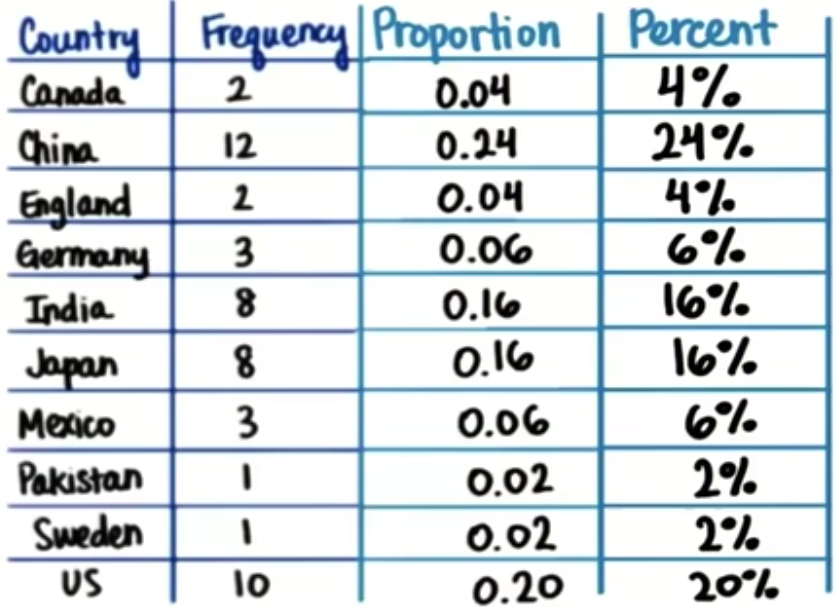 Country Frequency Proportion Percent
Canada 2 0.04 4%
China 12 0.24 24%
England 2 0.04 4%
Germany 3 0.06 6%
India 8 0.16 16%
Japan 8 0.16 16%
Mexico 3 0.06 6%
Pakistan 1 0.02 2%
Sweden 1 0.02 2%
US 10 0.20 20%